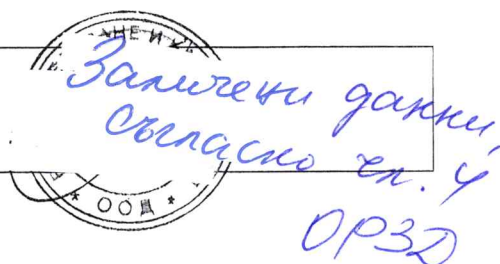 НЕ И
Заличени данни,
съгласно чл. 4
ОРЗД
* ООД *